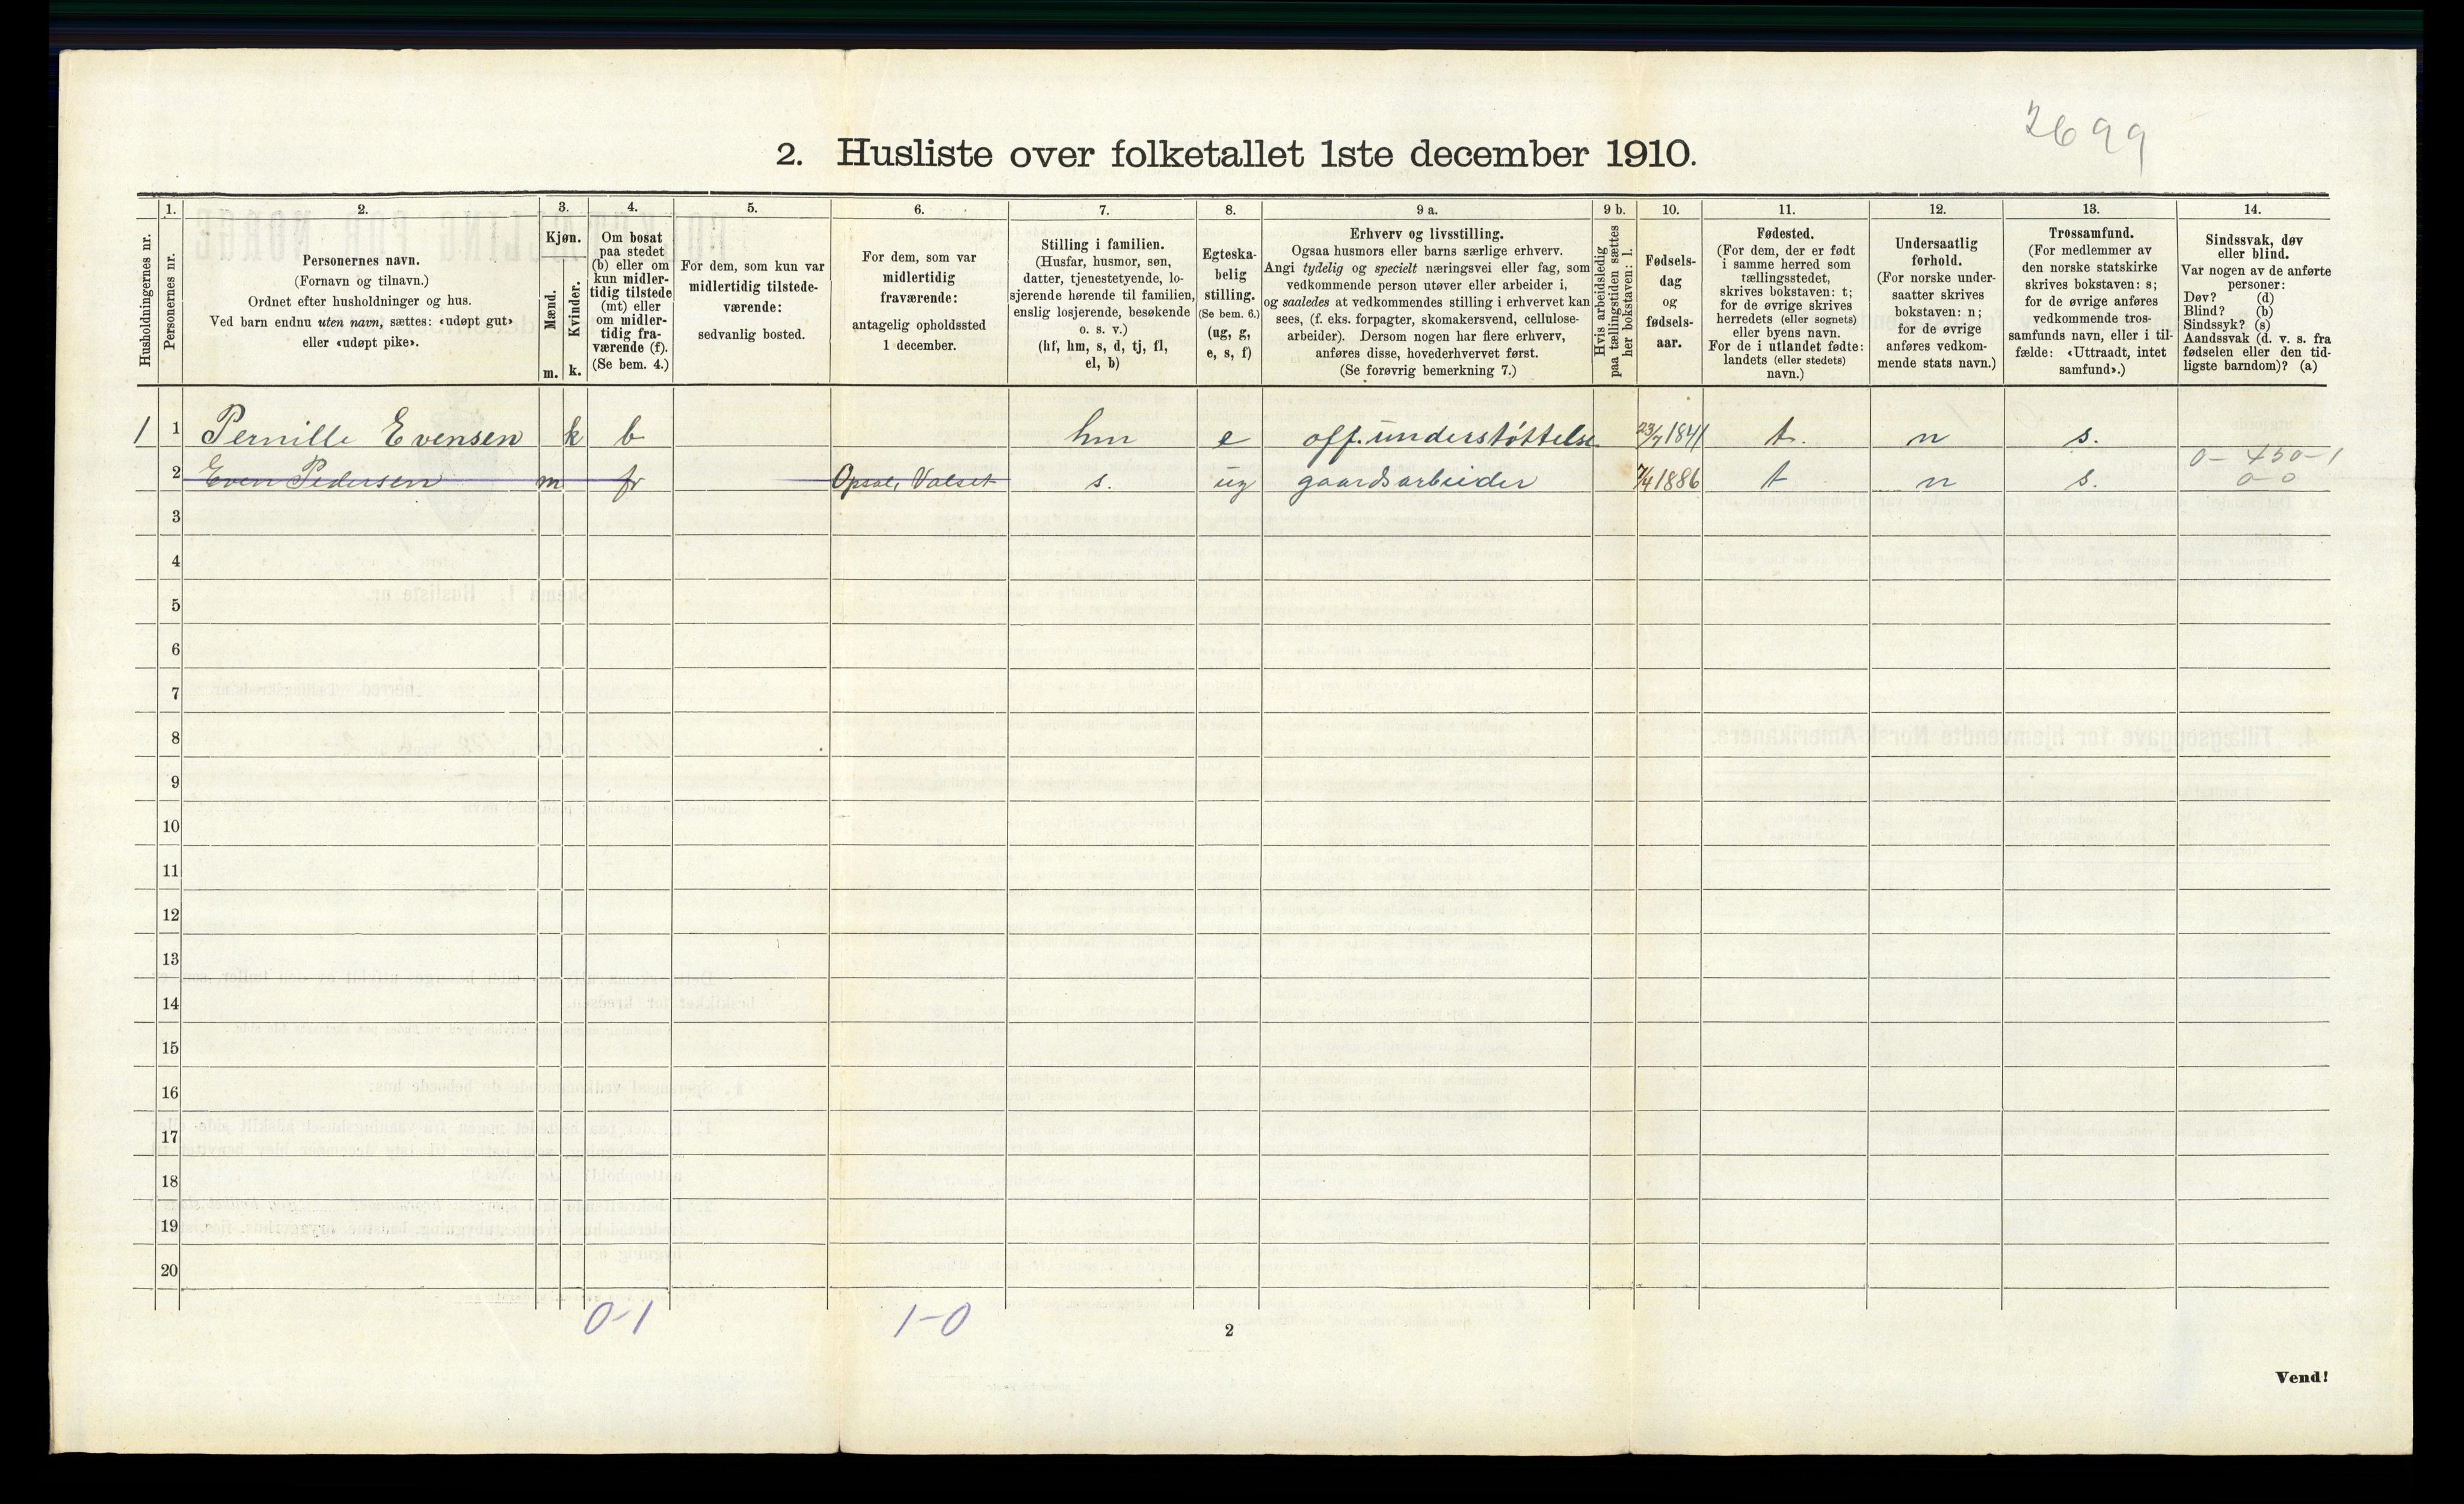 2699
2. Husliste over folketallet 1ste december 1910.
Husholdningernes nr.
1.
Personernes nr.
2.
Personernes navn.
(Fornavn og tilnavn.)
Ordnet efter husholdninger og hus.
Ved barn endnu uten navn, sættes: «udøpt gut»
eller «udøpt pike».
3.
Kjøn.
Mænd.
Kvinder.
m. k.
4.
Om bosat
paa stedet
(b) eller om
kun midler-
tidig tilstede
(mt) eller
om midler-
tidig fra-
værende (f).
(Se bem. 4.)
5.
For dem, som kun var
midlertidig tilstede-
værende:
sedvanlig bosted.
6.
For dem, som var
midlertidig
fraværende:
antagelig opholdssted
1 december.
7.
Stilling i familien.
(Husfar, husmor, søn,
datter, tjenestetyende, lo-
sjerende hørende til familien,
enslig losjerende, besøkende
o. s. v.)
(hf, hm, s, d, tj, fl,
el, b)
8.
Egteska-
belig
stilling.
(Se bem. 6.)
(ug, g,
e, s, f)
9 a.
Erhverv og livsstilling.
Ogsaa husmors eller barns særlige erhverv.
Angi tydelig og specielt næringsvei eller fag, som
vedkommende person utøver eller arbeider i,
og saaledes at vedkommendes stilling i erhvervet kan
sees, (f. eks. forpagter, skomakersvend, cellulose-
arbeider). Dersom nogen har flere erhverv,
anføres disse, hovederhvervet først.
(Se forøvrig bemerkning 7.)
9 b.
Hvis arbeidsledig
paa tællingstiden sættes
her bokstaven: l.
10.
Fødsels-
dag
og
fødsels-
aar.
11.
Fødested.
(For dem, der er født
i samme herred som
tællingsstedet,
skrives bokstaven: t;
for de øvrige skrives
herredets (eller sognets)
eller byens navn.
For de i utlandet fødte:
landets (eller stedets)
navn.)
12.
Undersaatlig
forhold.
(For norske under-
saatter skrives
bokstaven: n;
for de øvrige
anføres vedkom-
mende stats navn.)
13.
Trossamfund.
(For medlemmer av
den norske statskirke
skrives bokstaven: s;
for de øvrige anføres
vedkommende tros-
samfunds navn, eller i til-
fælde: «Uttraadt, intet
samfund».)
14.
Sindssvak, døv
eller blind.
Var nogen av de anførte
personer:
Døv? (d)
Blind? (b)
Sindssyk? (s)
Aandssvak (d. v. s. fra
fødselen eller den tid-
ligste barndom)? (a)
1 1 Pernille Evensen k b hm e off. understøttelse 23/7 1841 t. n s.
0 - 450 - 1
2 Even Pedersen m fr Opsal, Valset s. ug gaardsarbeider 7/4 1886 t n s. 0-0
3
4
5
6
7
8
9
10
11
12
13
14
15
16
17
18
19
20
0-1 1-0
2
Vend!